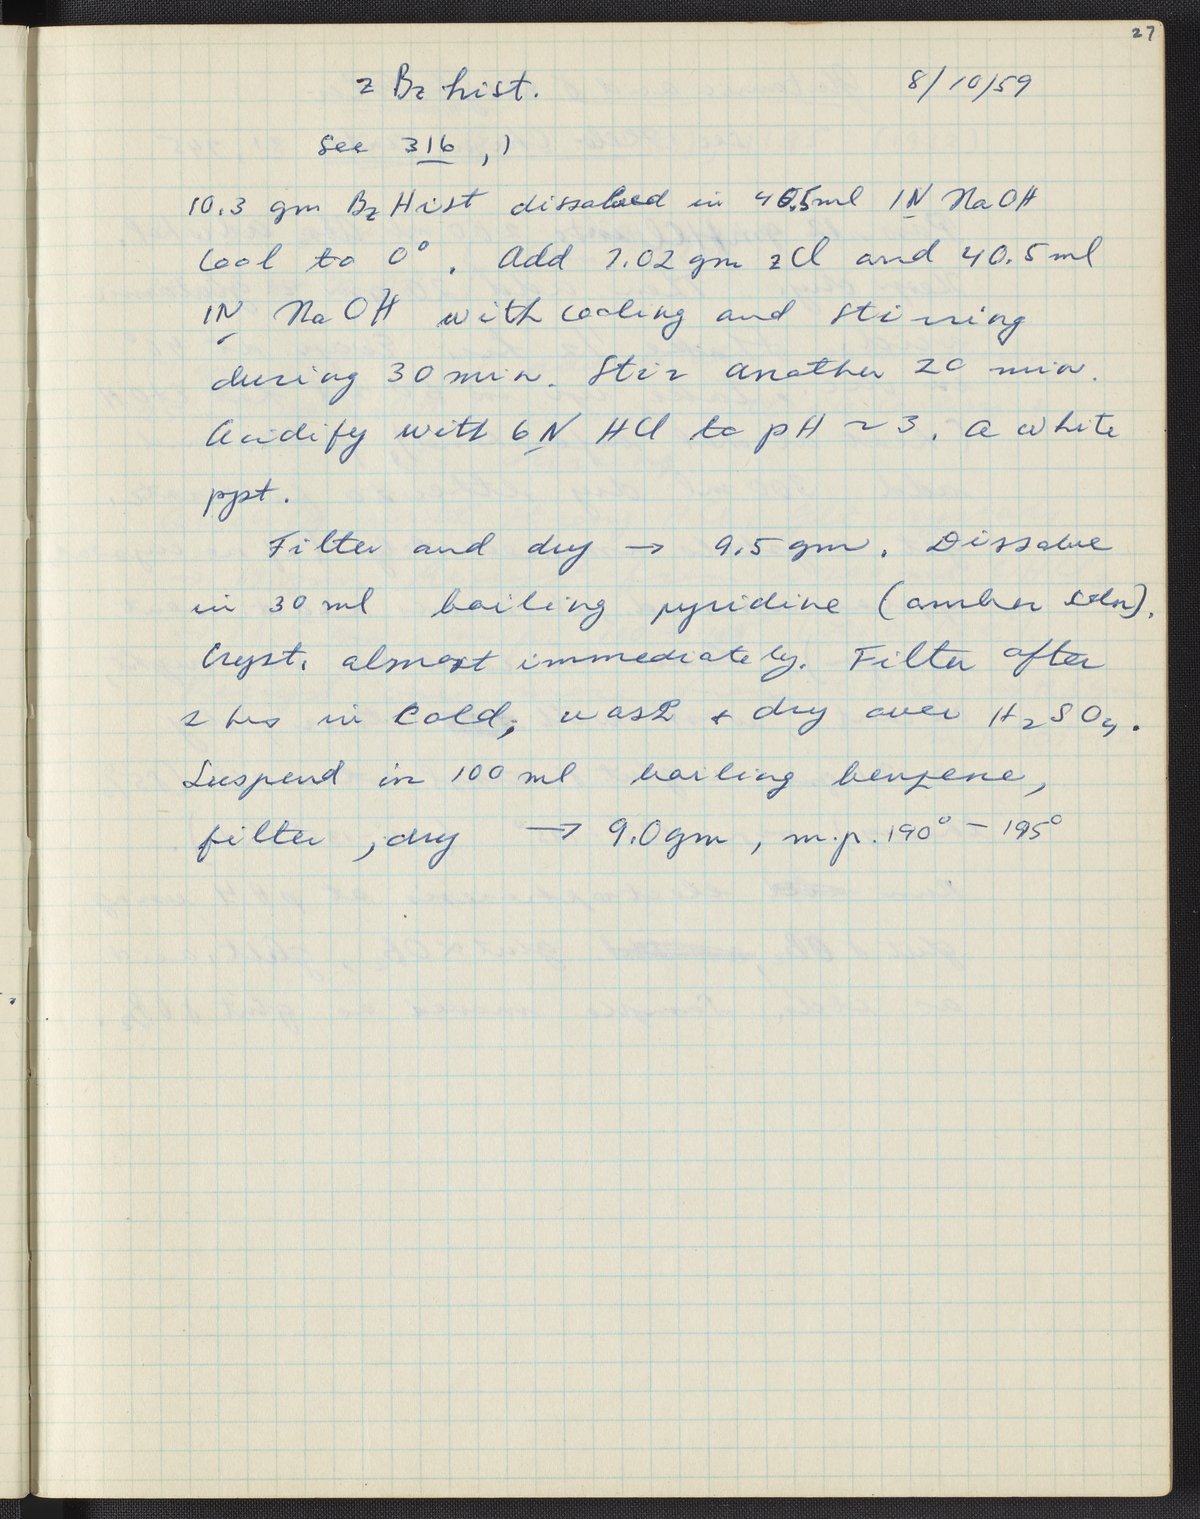 27
z Bz hist. 8/10/59
See 316, 1
10.3 gm Bz Hist dissolved in 40.5 ml 1N NaOH
Cool to 0°. Add 7.02 gm zCl and 40.5 ml
1N NaOH with cooling and stirring
during 30 min. Stir another 20 min.
Acidify with 6N HCl to pH ~ 3. A white
ppt.
Filter and dry → 9.5 gm. Dissolve
in 30 ml boiling pyridine (amber soln).
Cryst. almost immediately. Filter after
2 hrs in cold, wash + dry over H2SO4.
Suspend in 100 ml boiling benzene,
filter, dry → 9.0 gm, m.p. 190° - 195°